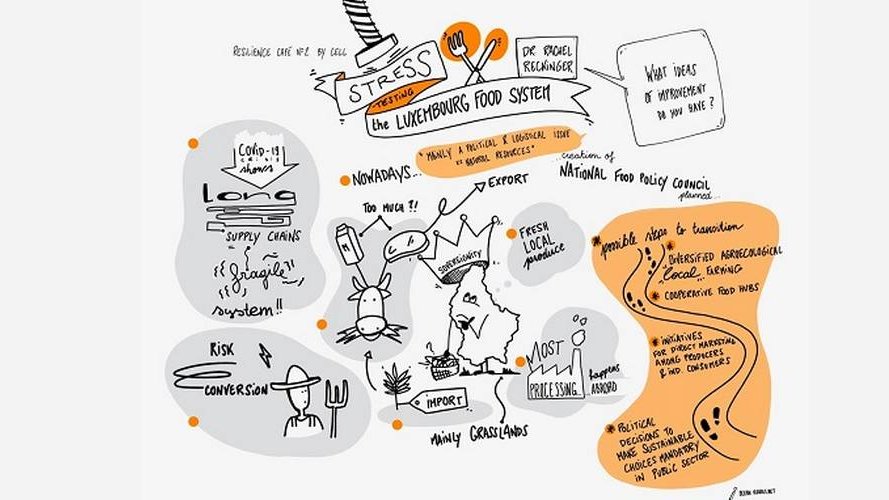 RESILIENCE CAFÉ Nº2 BY CELL
STRESS
TESTING
the LUXEMBOURG FOOD SYSTEM
DR RACHEL
RECKINGER
WHAT IDEAS
OF IMPROVEMENT
DO YOU HAVE?
"MAINLY A POLITICAL & LOGISTICAL ISSUE
vs NATURAL RESOURCES"
NOWADAYS...
creation of
NATIONAL FOOD POLICY COUNCIL
planned...
COVID-19
crisis
shows
Long
SUPPLY CHAINS
fragile
system!!
TOO MUCH?!
EXPORT
M
SOVEREIGNITY
FRESH
LOCAL
produce
RISK
CONVERSION
IMPORT
MAINLY GRASSLANDS
MOST
PROCESSING
happens
ABROAD
possible steps to transition
DIVERSIFIED AGROECOLOGICAL
"local" FARMING
COOPERATIVE FOOD HUBS
INITIATIVES
FOR DIRECT MARKETING
AMONG PRODUCERS
& IND. CONSUMERS
POLITICAL
DECISIONS TO
MAKE SUSTAINABLE
CHOICES MANDATORY
IN PUBLIC SECTOR